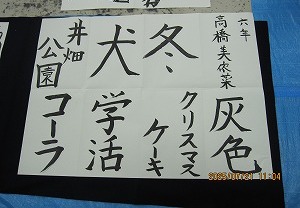 六年
高橋美依菜
灰色
冬
クリスマス
ケーキ
犬
学活
井畑
公園
コーラ
11:04